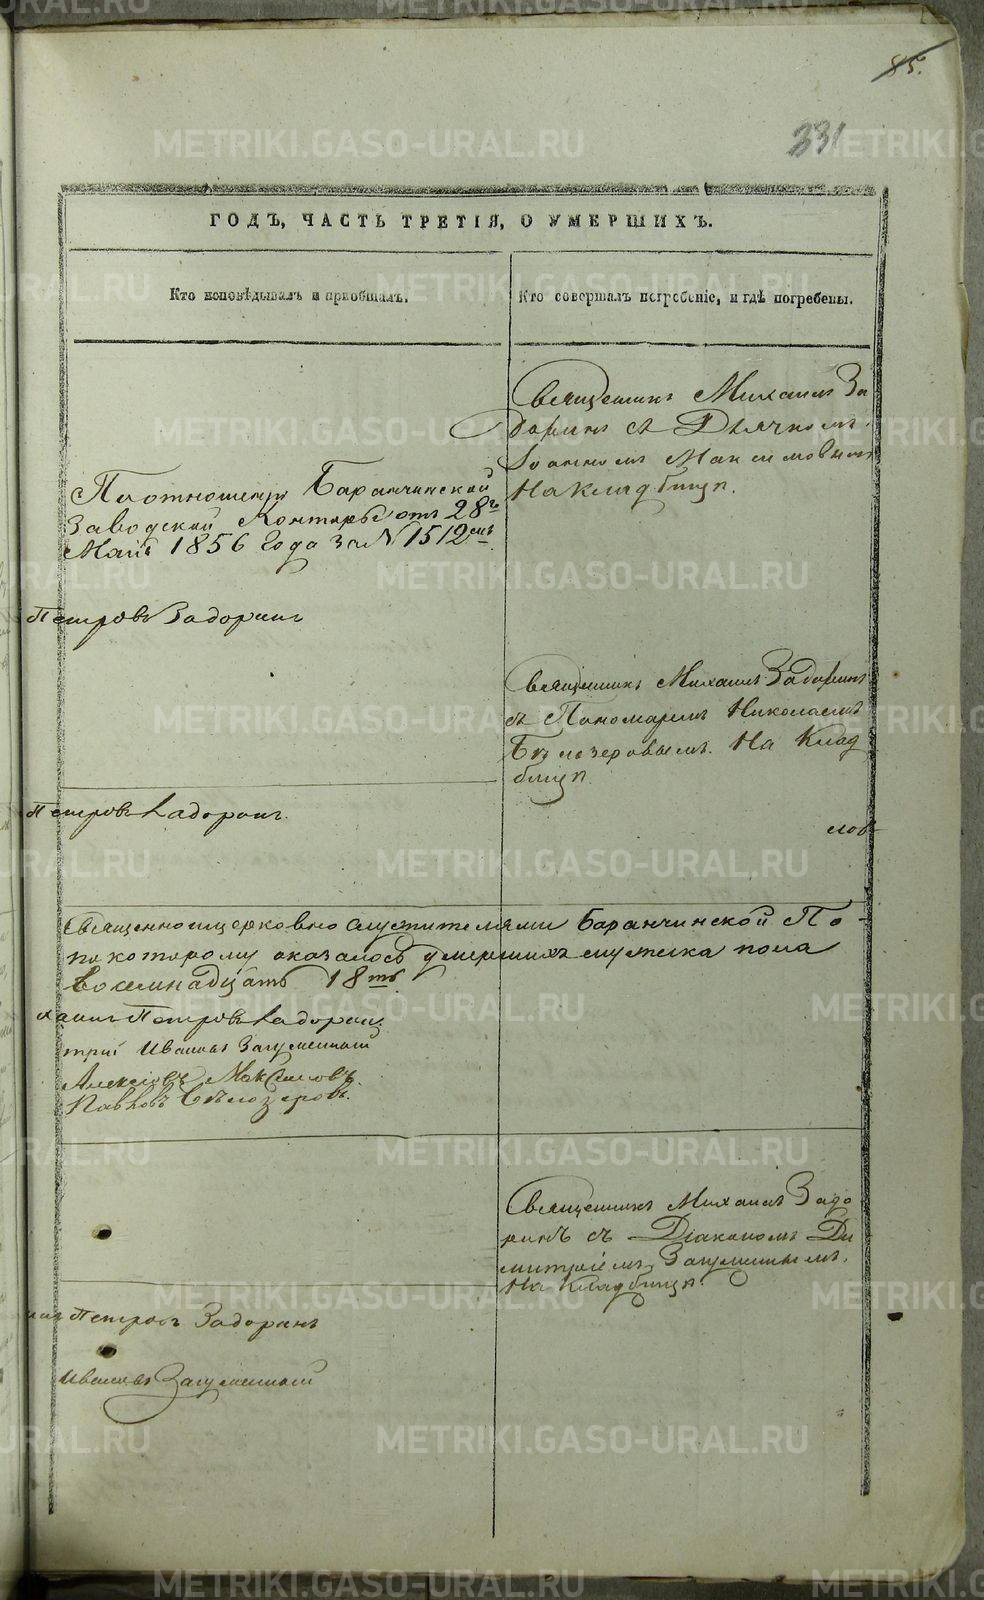 85.
331
ГОДЪ, ЧАСТЬ ТРЕТІЯ, О УМЕРШИХЪ.
Кто исповѣдывалъ и пріобщалъ.
Кто совершалъ погребеніе, и гдѣ погребены.
Священникъ Михаилъ За
доринъ съ Дьячкомъ
Іоанномъ Максимовымъ
На кладбищѣ.
По отношенію Баранчинской
Заводской Конторы отъ 28го
Маія 1856 Года за N 1512емъ
Петровъ Задоринъ
Священникъ Михаилъ Задоринъ
съ Пономаремъ Николаемъ
Бѣлозеровымъ. На Клад
бищѣ.
Петровъ Задоринъ.
лов
Священноцерковнослужителями Баранчинской По-
по которому оказалось умершихъ мужеска пола
восемнадцать 18ть.
хаилъ Петровъ Задоринъ.
трій Ивановъ Загуменный
Алексіевъ Максимовъ.
Павловъ Бѣлозеровъ.
Священникъ Михаилъ Задо
ринъ съ Діакономъ Ди
митріемъ Загуменнымъ.
На Кладбищѣ.
илъ Петровъ Задоринъ
Ивановъ Загуменный
METRIKI.GASO-URAL.RU